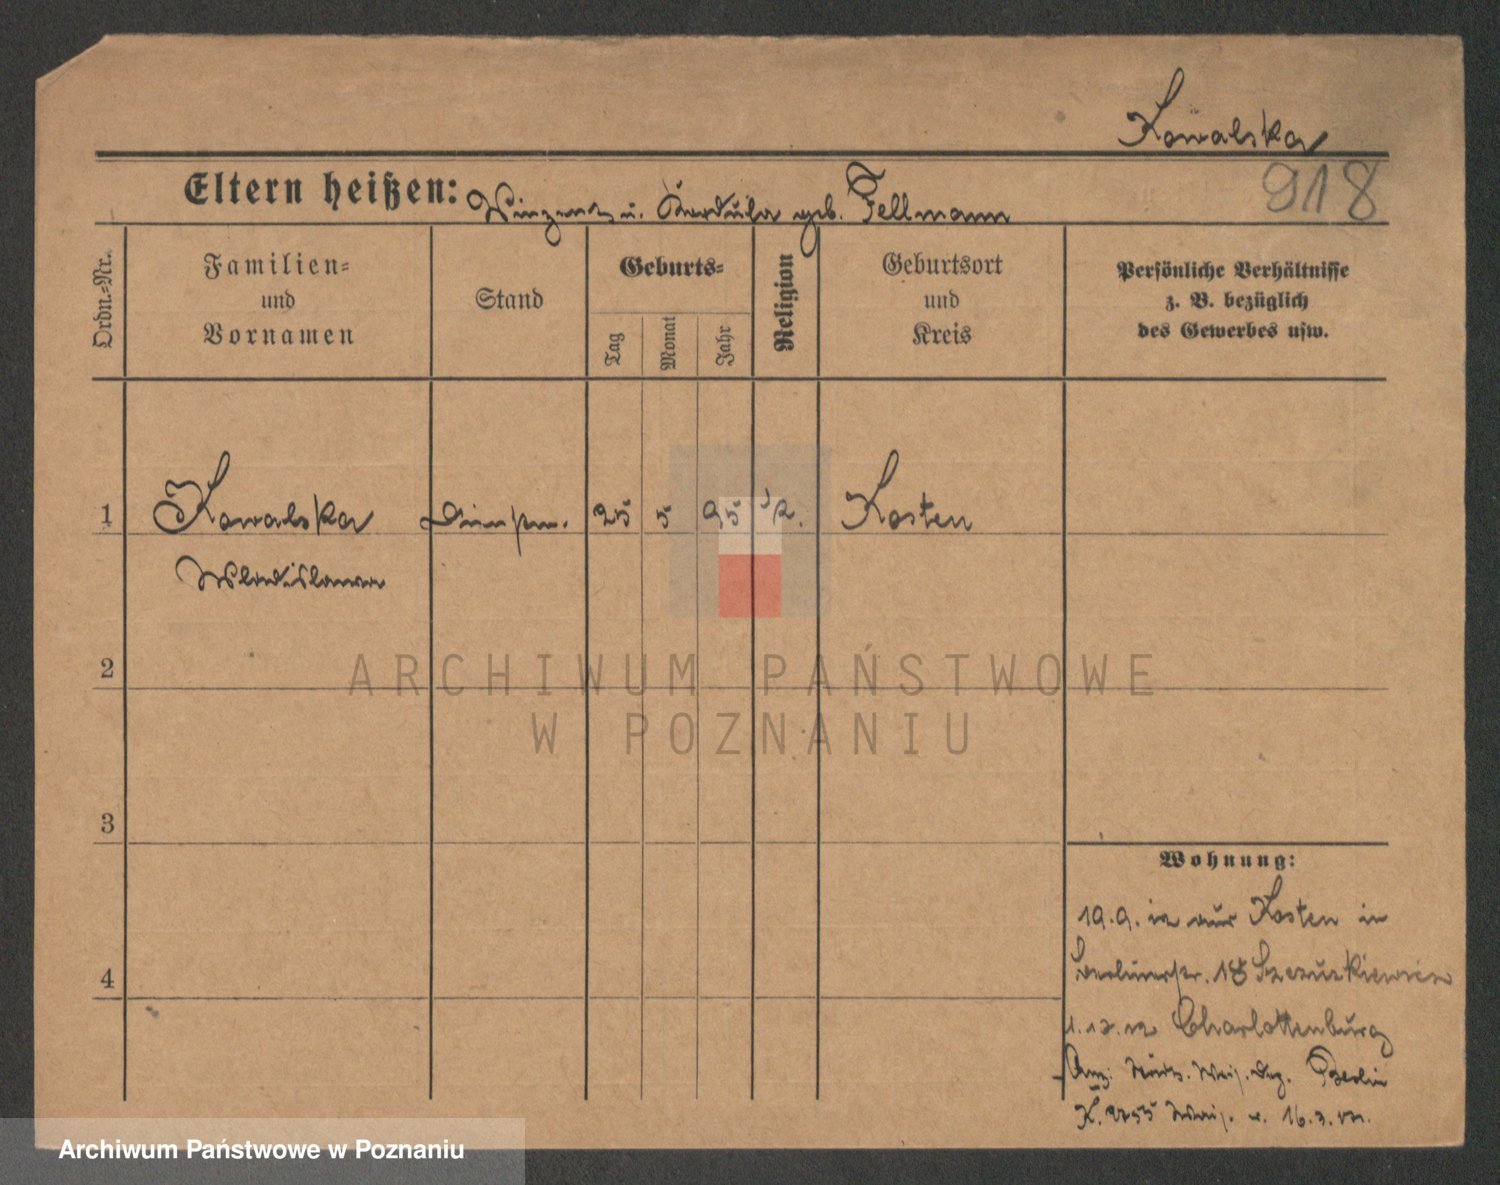 Kowalska
918
Eltern heißen: Winzent u. Kordula geb. Fellmann
Ordn.=Nr.
Familien=
und
Vornamen
Stand
Geburts=
Tag
Monat
Jahr
Religion
Geburtsort
und
Kreis
Persönliche Verhältnisse
z. B. bezüglich
des Gewerbes usw.
1 Kowalska 25 5 95 k. Kosten
Wladislawa
2
3
4
Wohnung:
19.9. 12 aus Kosten in
18
Charlottenburg
Berlin
ARCHIWUM PAŃSTWOWE
W POZNANIU
Archiwum Państwowe w Poznaniu